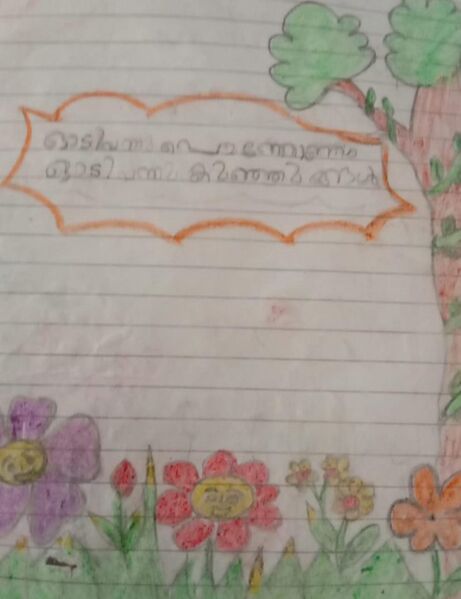 ഓടിവന്നു പൊന്നോണം
ഓടി വന്നു കുഞ്ഞുങ്ങൾ